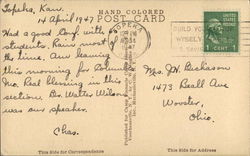 HAND COLORED
POST CARD
Topeka, Kan.
14 April 1947
Had a good Conf. with 60
students. Rain most
the time. Am leaving
this morning for Columbia
Mo. Real blessing in this
section. Dr. Walter Wilson
was our speaker.
Chas.
BUILD YOUR
WISELY
1 CENT 1
Mrs. J. H. Dickason
1473 Beall Ave
Wooster,
Ohio.
This Side for Correspondence
This Side for Address